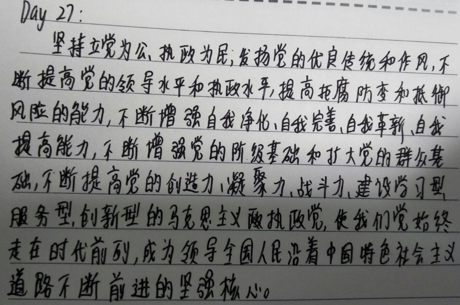 Day 27:
坚持立党为公、执政为民,发扬党的优良传统和作风,不
断提高党的领导水平和执政水平,提高拒腐防变和抵御
风险的能力,不断增强自我净化、自我完善、自我革新、自我
提高能力,不断增强党的阶级基础和扩大党的群众基
础,不断提高党的创造力、凝聚力、战斗力,建设学习型
服务型,创新型的马克思主义执政党,使我们党始终
走在时代前列,成为领导全国人民沿着中国特色社会主义
道路不断前进的坚强核心。